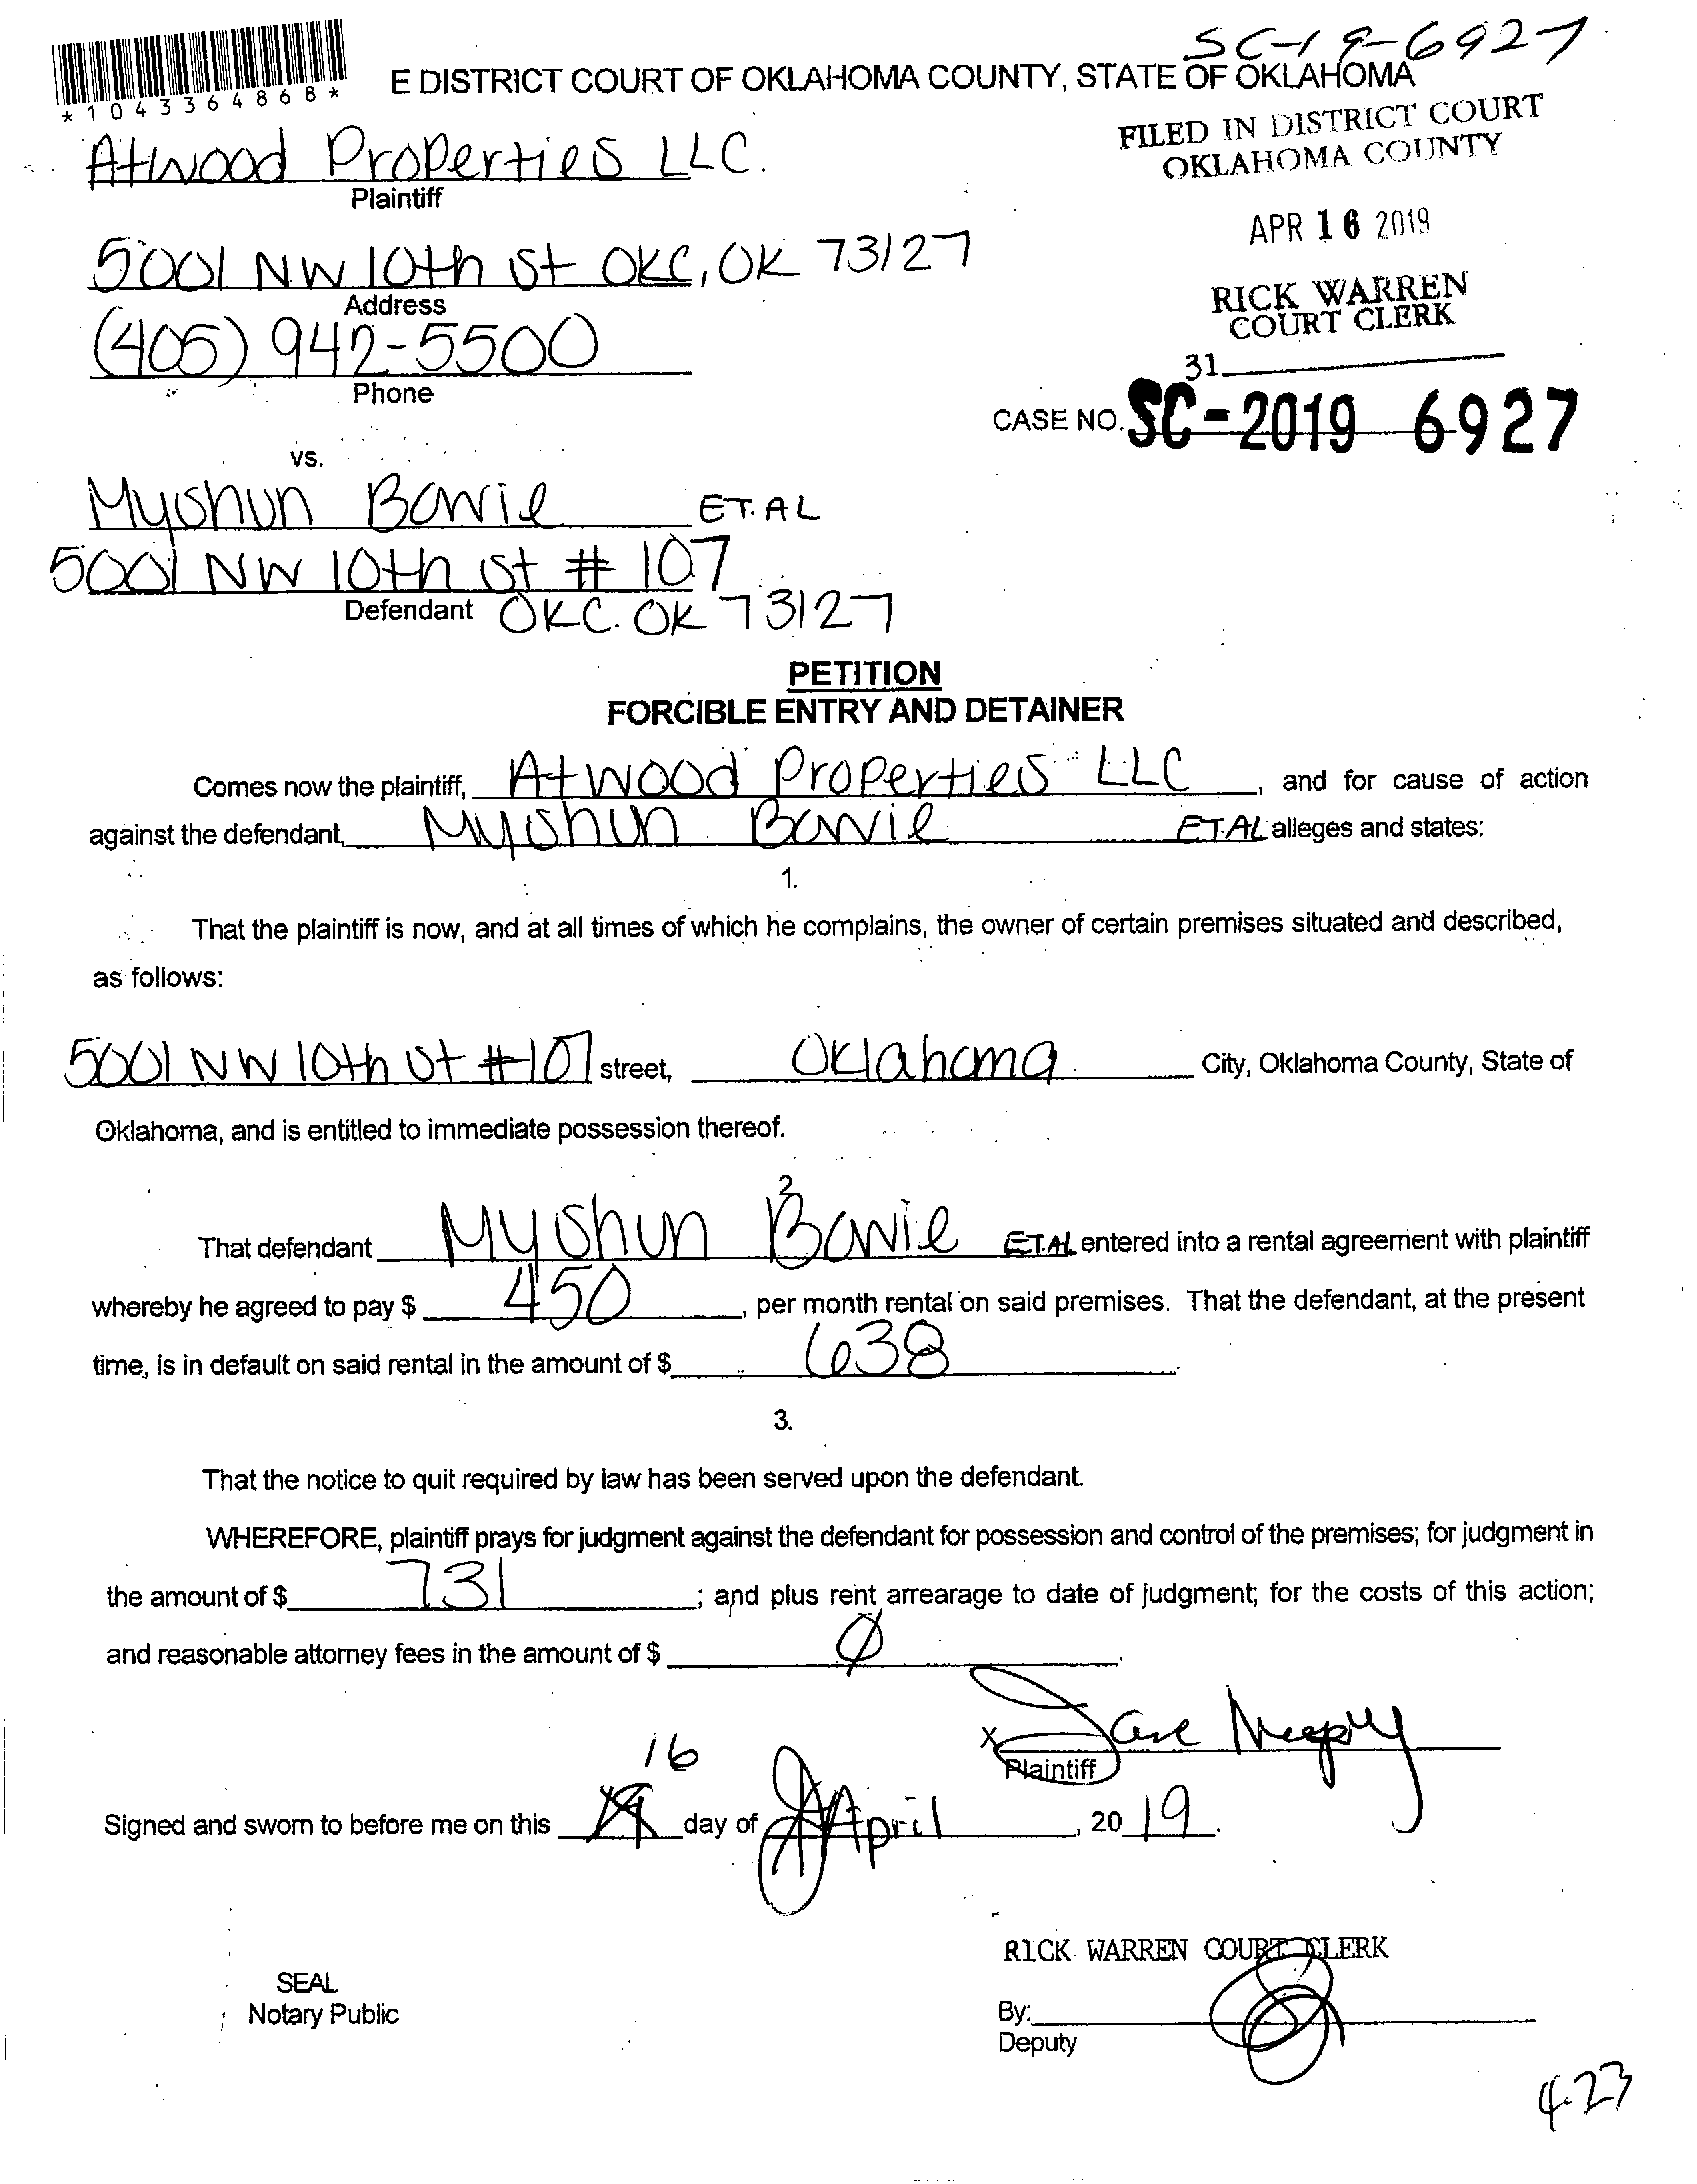 SC-19-6927
*1043364868*
E DISTRICT COURT OF OKLAHOMA COUNTY, STATE OF OKLAHOMA
FILED IN DISTRICT COURT
OKLAHOMA COUNTY
Atwood Properties LLC.
Plaintiff
APR 16 2019
5001 NW 10th St OKC, OK 73127
Address
RICK WARREN
COURT CLERK
(405) 942-5500
Phone
31
CASE NO. SC-2019 6927
vs.
Myshun Bowie ET.AL
5001 NW 10th St # 107
Defendant OKC. OK 73127
PETITION
FORCIBLE ENTRY AND DETAINER
Comes now the plaintiff, Atwood Properties LLC, and for cause of action
against the defendant, Myshun Bowie ET.AL alleges and states:
1.
That the plaintiff is now, and at all times of which he complains, the owner of certain premises situated and described,
as follows:
5001 NW 10th St #107 street, Oklahoma City, Oklahoma County, State of
Oklahoma, and is entitled to immediate possession thereof.
2
That defendant Myshun Bowie ET.AL entered into a rental agreement with plaintiff
whereby he agreed to pay $ 450, per month rental on said premises. That the defendant, at the present
time, is in default on said rental in the amount of $ 638.
3.
That the notice to quit required by law has been served upon the defendant.
WHEREFORE, plaintiff prays for judgment against the defendant for possession and control of the premises; for judgment in
the amount of $ 731; and plus rent arrearage to date of judgment; for the costs of this action;
and reasonable attorney fees in the amount of $ 0.
X
Plaintiff
16
Signed and sworn to before me on this day of April, 20 19.
RICK WARREN COURT CLERK
SEAL
Notary Public
By:
Deputy
4-23